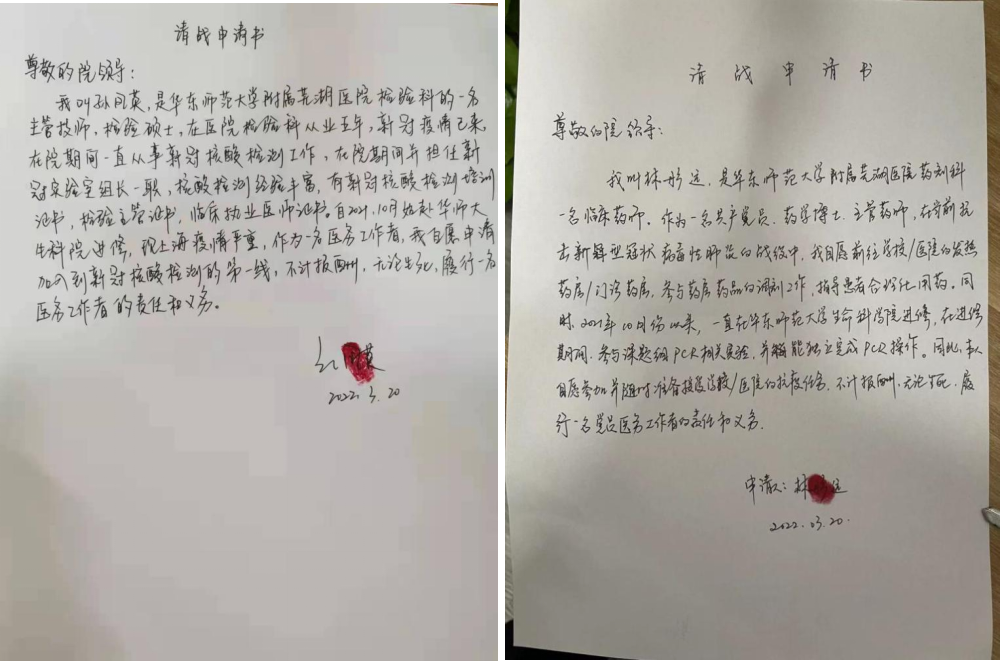 请战申请书
尊敬的院领导：
我叫孙同英，是华东师范大学附属芜湖医院检验科的一名
主管技师，检验硕士，在医院检验科从业五年，新冠疫情已来，
在院期间一直从事新冠核酸检测工作，在院期间并担任新
冠实验室组长一职，核酸检测经验丰富，有新冠核酸检测培训
证书，检验主管证书，临床执业医师证书。自2021.10月始赴华师大
生科院进修，现上海疫情严重，作为一名医务工作者，我自愿申请
加入到新冠核酸检测的第一线，不计报酬，无论生死，履行一名
医务工作者的责任和义务。
英
2022.3.20
请战申请书
尊敬的院领导：
我叫林彤远，是华东师范大学附属芜湖医院药剂科
一名临床药师。作为一名共产党员、药学博士、主管药师，在当前抗
击新型冠状病毒性肺炎的战役中，我自愿前往学校/医院的发热
药房/门诊药房，参与药房药品的调剂工作，指导患者合理使用药。同
时，2021年10月份以来，一直在华东师范大学生命科学院进修，在进修
期间，参与课题组PCR相关实验，并能独立完成PCR操作。因此，本人
自愿参加并随时准备接受学校/医院的抗疫任务，不计报酬，无论生死，履
行一名党员医务工作者的责任和义务。
申请人：林远
2022.03.20.